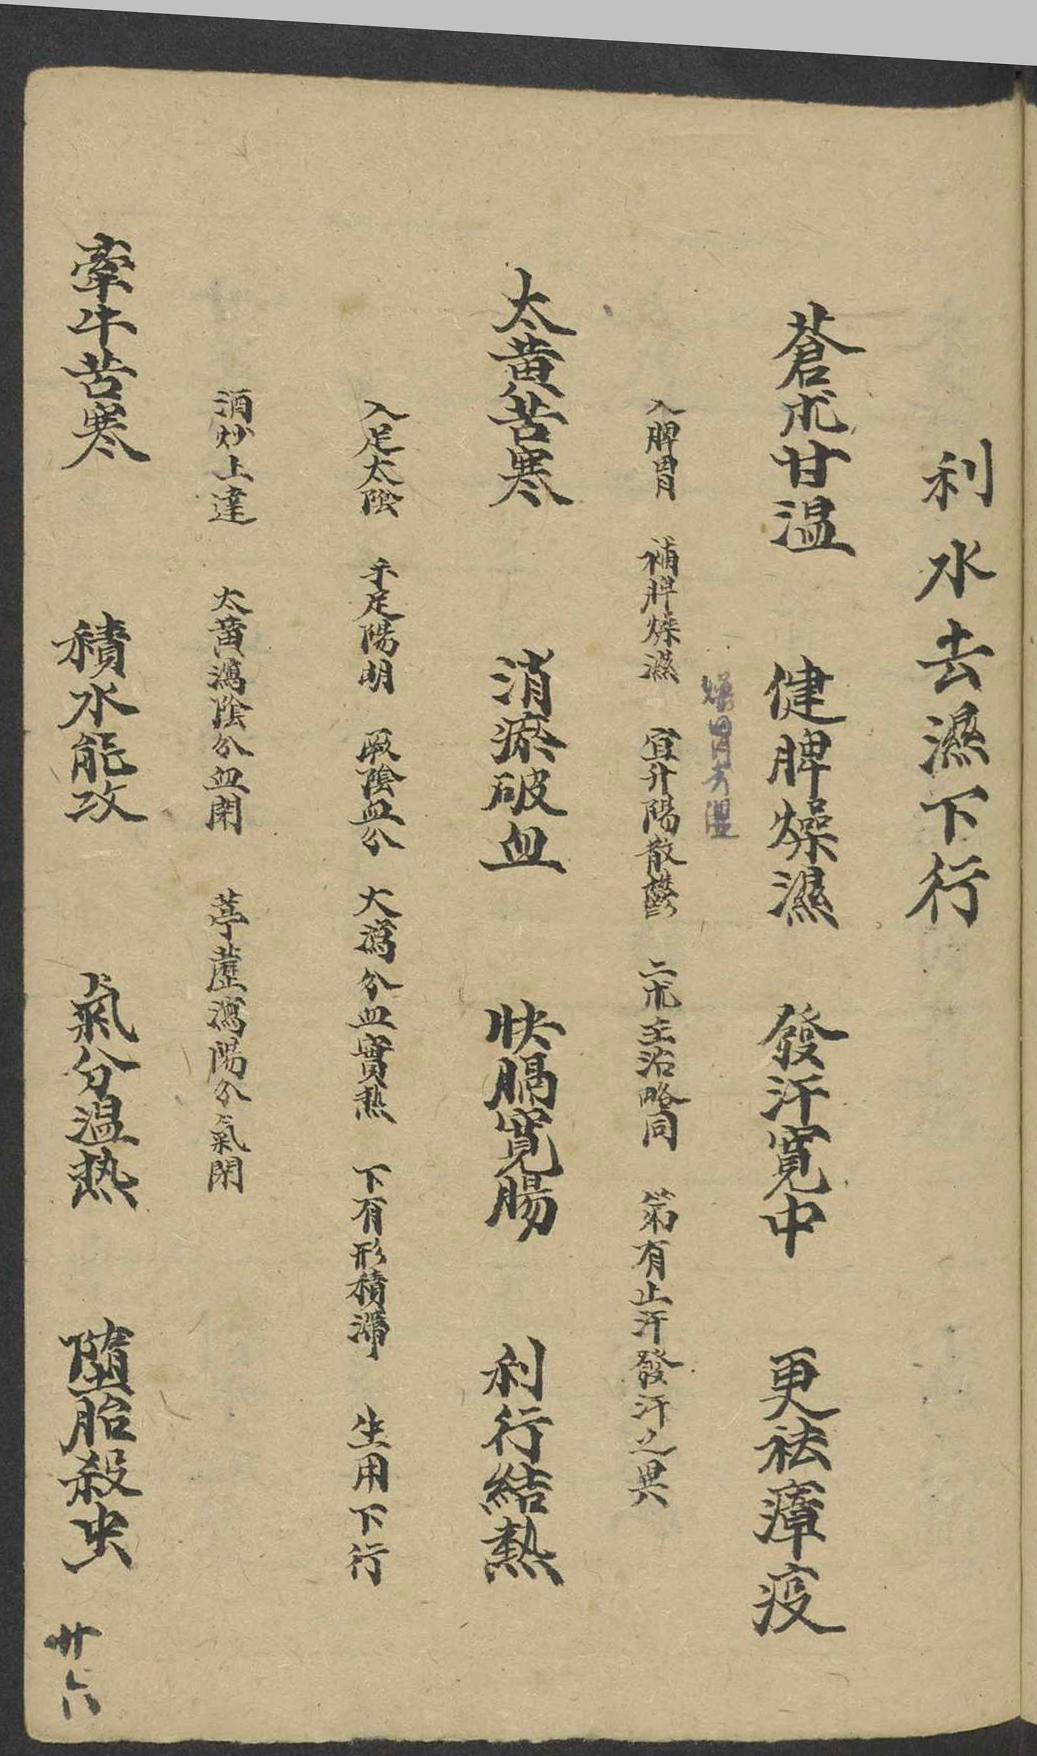 利水去濕下行
蒼朮甘温 健脾燥濕 發汗寬中 更祛瘴疫
燥胃去濕
入脾胃 補脾燥濕 宣升陽散鬱 二朮主治略同 第有止汗發汗之異
太黄苦寒 消瘀破血 快膈寬腸 利行結熱
入足太陰 手足陽明 厥陰血分 大瀉分血實热 下有形積滯 生用下行
酒炒上達 太黄瀉陰分血閉 葶藶瀉陽分氣閉
牽牛苦寒 積水能攻 氣分温热 墮胎殺虫
廿六